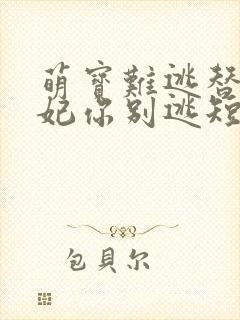 萌寶難逃替
妃你别逃短
包貝尔